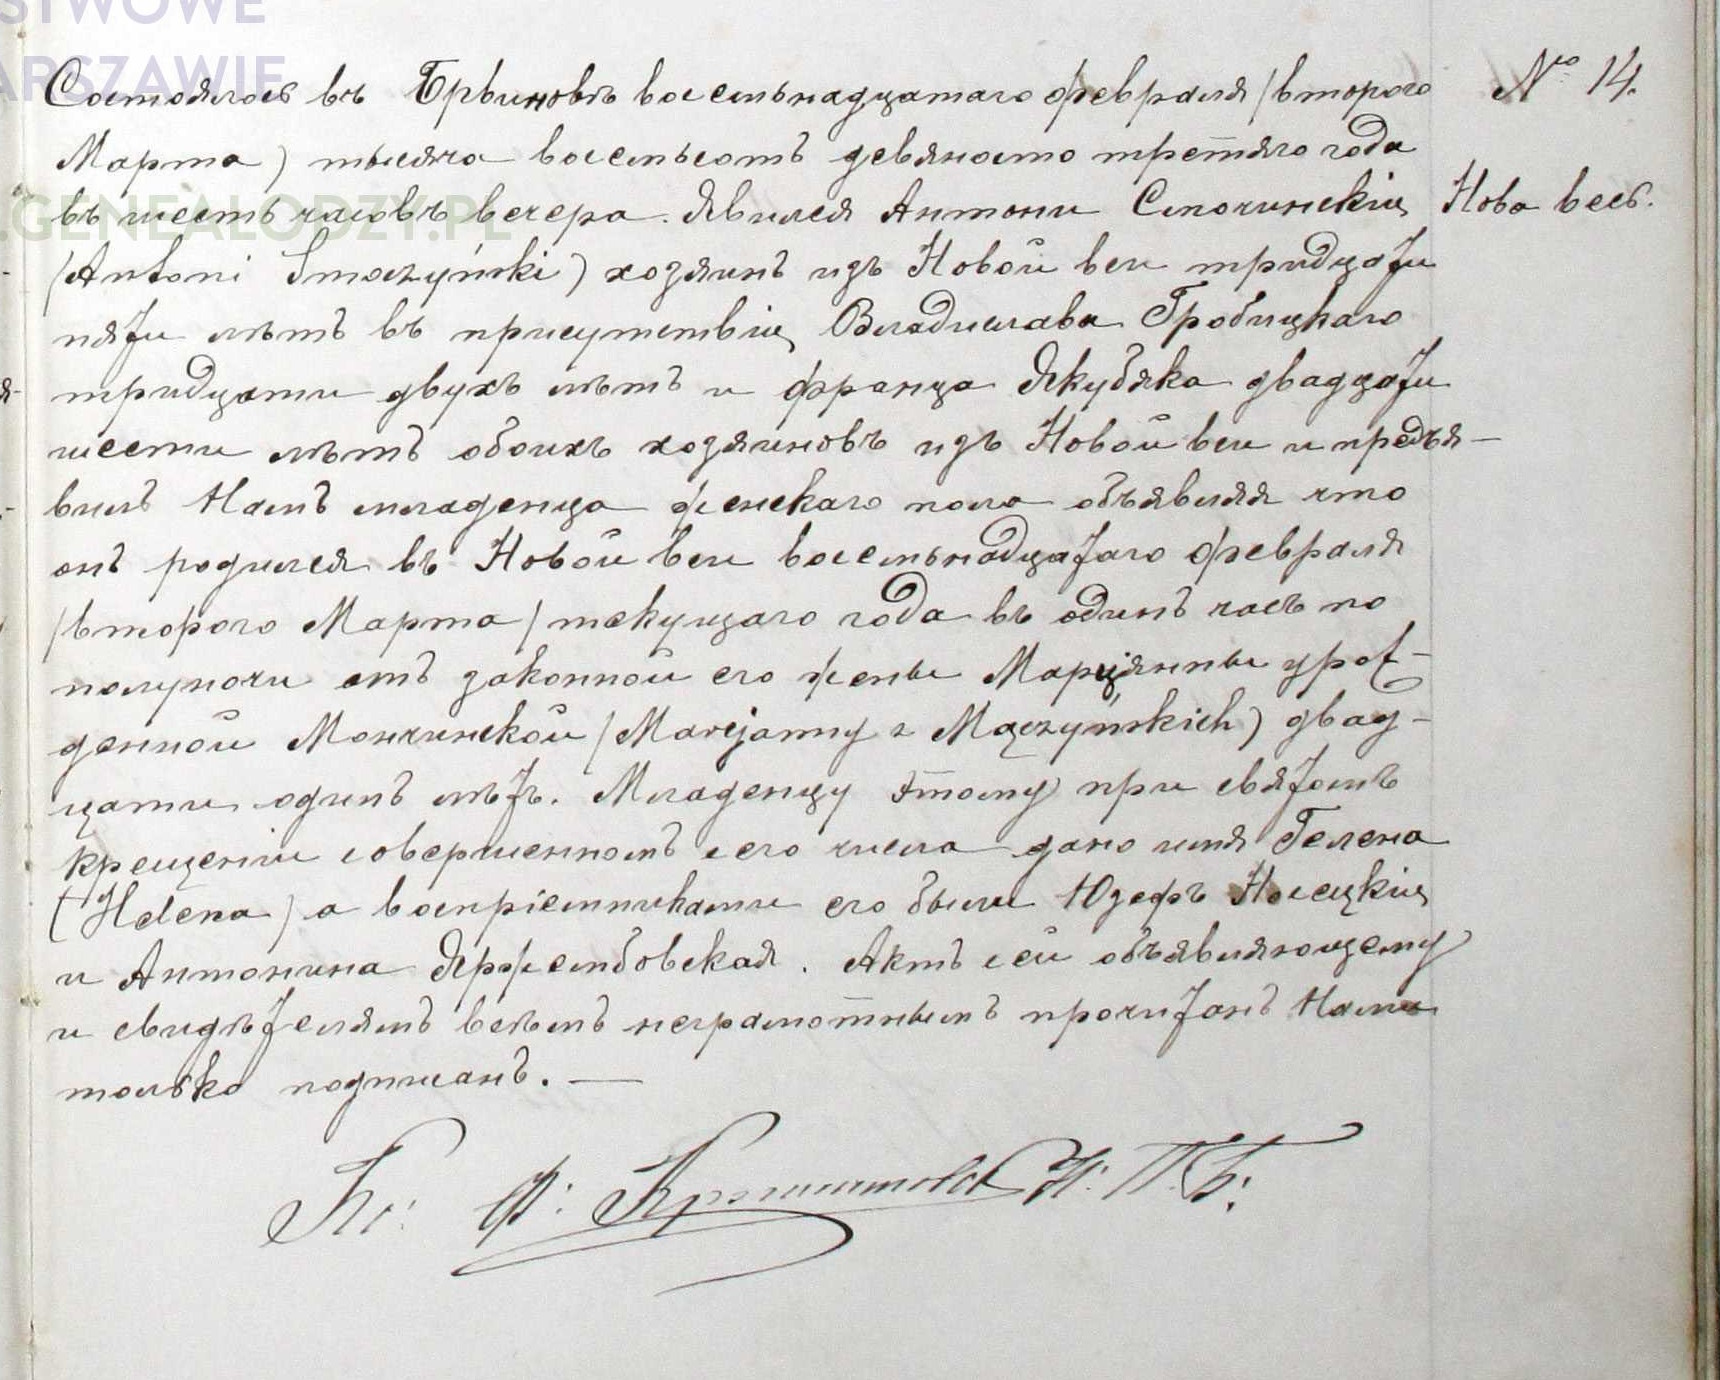 STWOWE
ARSZAWIE
.GENEALODZY.PL
Состоялось въ Брвиновѣ восемьнадцатаго февраля /второго
№ 14.
Марта) тысяча восемьсотъ девяносто третяго года
въ шесть часовъ вечера. Явился Антони Смочинскій
Нова весь.
/Antoni Smoczyński) хозяинъ изъ Новой вси тридцати
пяти лѣтъ въ присутствіи Владислава Гробицкаго
тридцати двухъ лѣтъ и Франца Якубяка двадцати
шести лѣтъ обоихъ хозяиновъ изъ Новой вси и предъя-
вилъ Намъ младенца женскаго пола объявляя что
онъ родился въ Новой вси восемьнадцатаго февраля
/второго Марта/ текущаго года въ одинъ часъ по
полуночи отъ законной его жены Марціянны урож-
денной Мончинской /Marcjanny z Mączyńskich) двад-
цати одинъ лѣтъ. Младенцу этому при святомъ
крещеніи совершенномъ сего числа дано имя Гелена
(Helena) а воспріемниками его были Юзефъ Носецкій
и Антонина Яржембовская. Актъ сей объявляющему
и свидѣтелямъ всѣмъ неграмотнымъ прочитанъ Нами
только подписанъ. —
Кс: Ф: Н: П. Б: